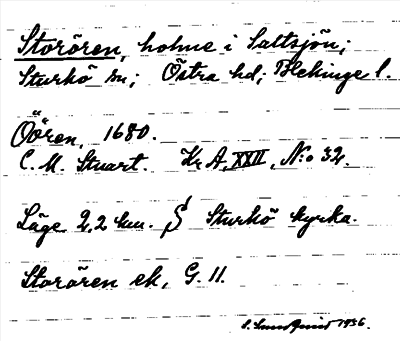 Storören, holme i Saltsjön;
Sturkö sn; Östra hd; Blekinge l.
Öören, 1680.
C. M. Stuart. Kr A, XXII, N:o 32.
Läge 2,2 km. S Sturkö kyrka.
Storören ek, G. 11.
S. Sundquist 1936.